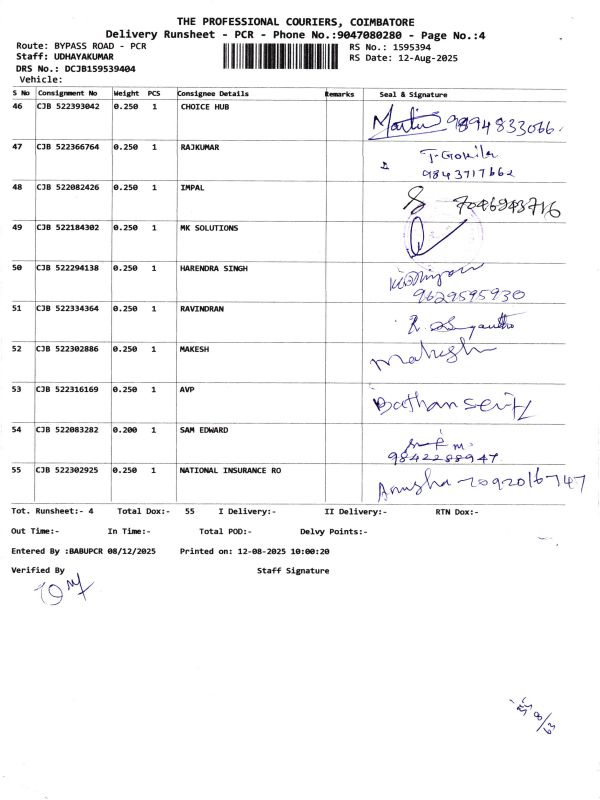 THE PROFESSIONAL COURIERS, COIMBATORE
Delivery Runsheet - PCR - Phone No.:9047080280 - Page No.:4
Route: BYPASS ROAD - PCR RS No.: 1595394
Staff: UDHAYAKUMAR RS Date: 12-Aug-2025
DRS No.: DCJB159539404
Vehicle:
S No Consignment No Weight PCS Consignee Details Remarks Seal & Signature
46 CJB 522393042 0.250 1 CHOICE HUB
47 CJB 522366764 0.250 1 RAJKUMAR
9843717662
48 CJB 522082426 0.250 1 IMPAL
49 CJB 522184302 0.250 1 MK SOLUTIONS
50 CJB 522294138 0.250 1 HARENDRA SINGH
9629595930
51 CJB 522334364 0.250 1 RAVINDRAN
52 CJB 522302886 0.250 1 MAKESH
53 CJB 522316169 0.250 1 AVP
54 CJB 522083282 0.200 1 SAM EDWARD
9842288947
55 CJB 522302925 0.250 1 NATIONAL INSURANCE RO Anusha
Tot. Runsheet:- 4 Total Dox:- 55 I Delivery:- II Delivery:- RTN Dox:-
Out Time:- In Time:- Total POD:- Delvy Points:-
Entered By :BABUPCR 08/12/2025 Printed on: 12-08-2025 10:00:20
Verified By Staff Signature